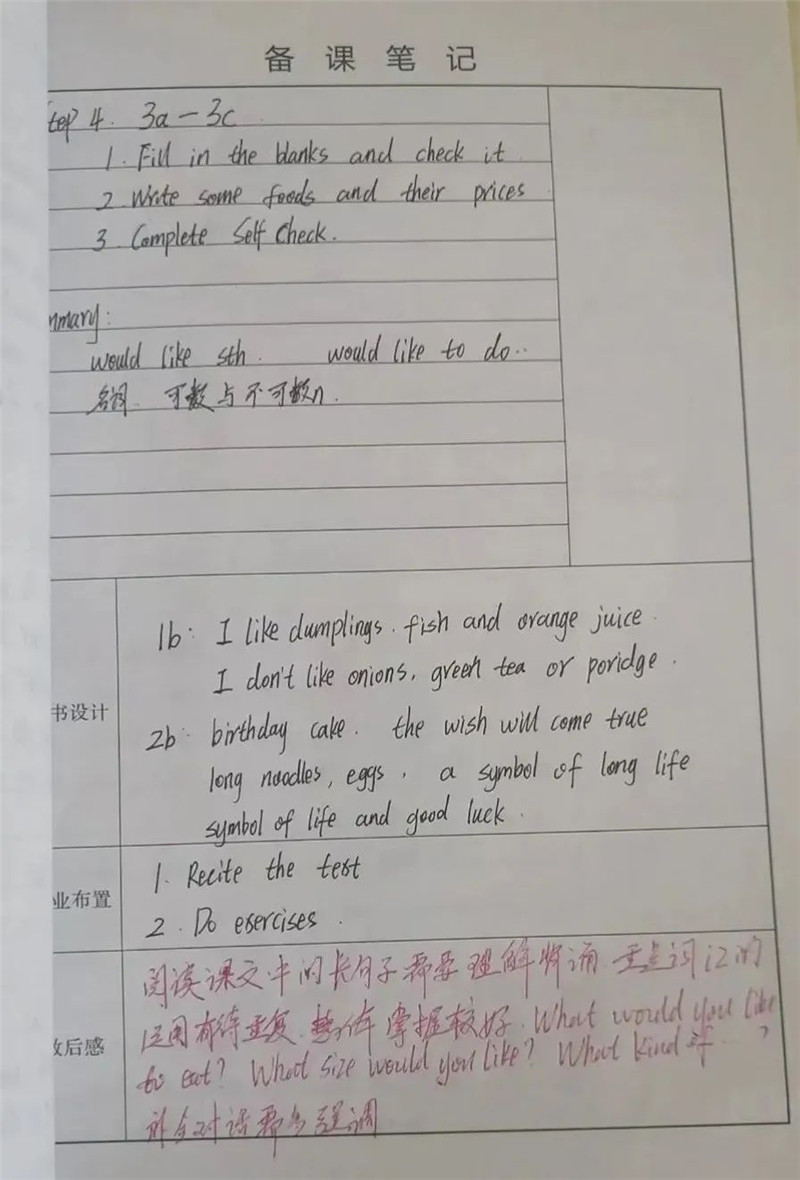 备课笔记
tep 4. 3a — 3c
1. Fill in the blanks and check it
2. Write some foods and their prices
3. Complete Self Check.
mmary:
would like sth. would like to do..
名词. 可数与不可数n.
书设计
1b: I like dumplings. fish and orange juice.
I don't like onions, green tea or poridge.
2b: birthday cake. the wish will come true
long noodles, eggs, a symbol of long life
symbol of life and good luck.
业布置
1. Recite the test
2. Do esercises.
后感
阅读课文中的长句子需要理解 诵 重点词汇的
运用有待重复. 整体掌握较好. What would you like
to eat? What size would you like? What kind of ... ?
补全对话要多强调